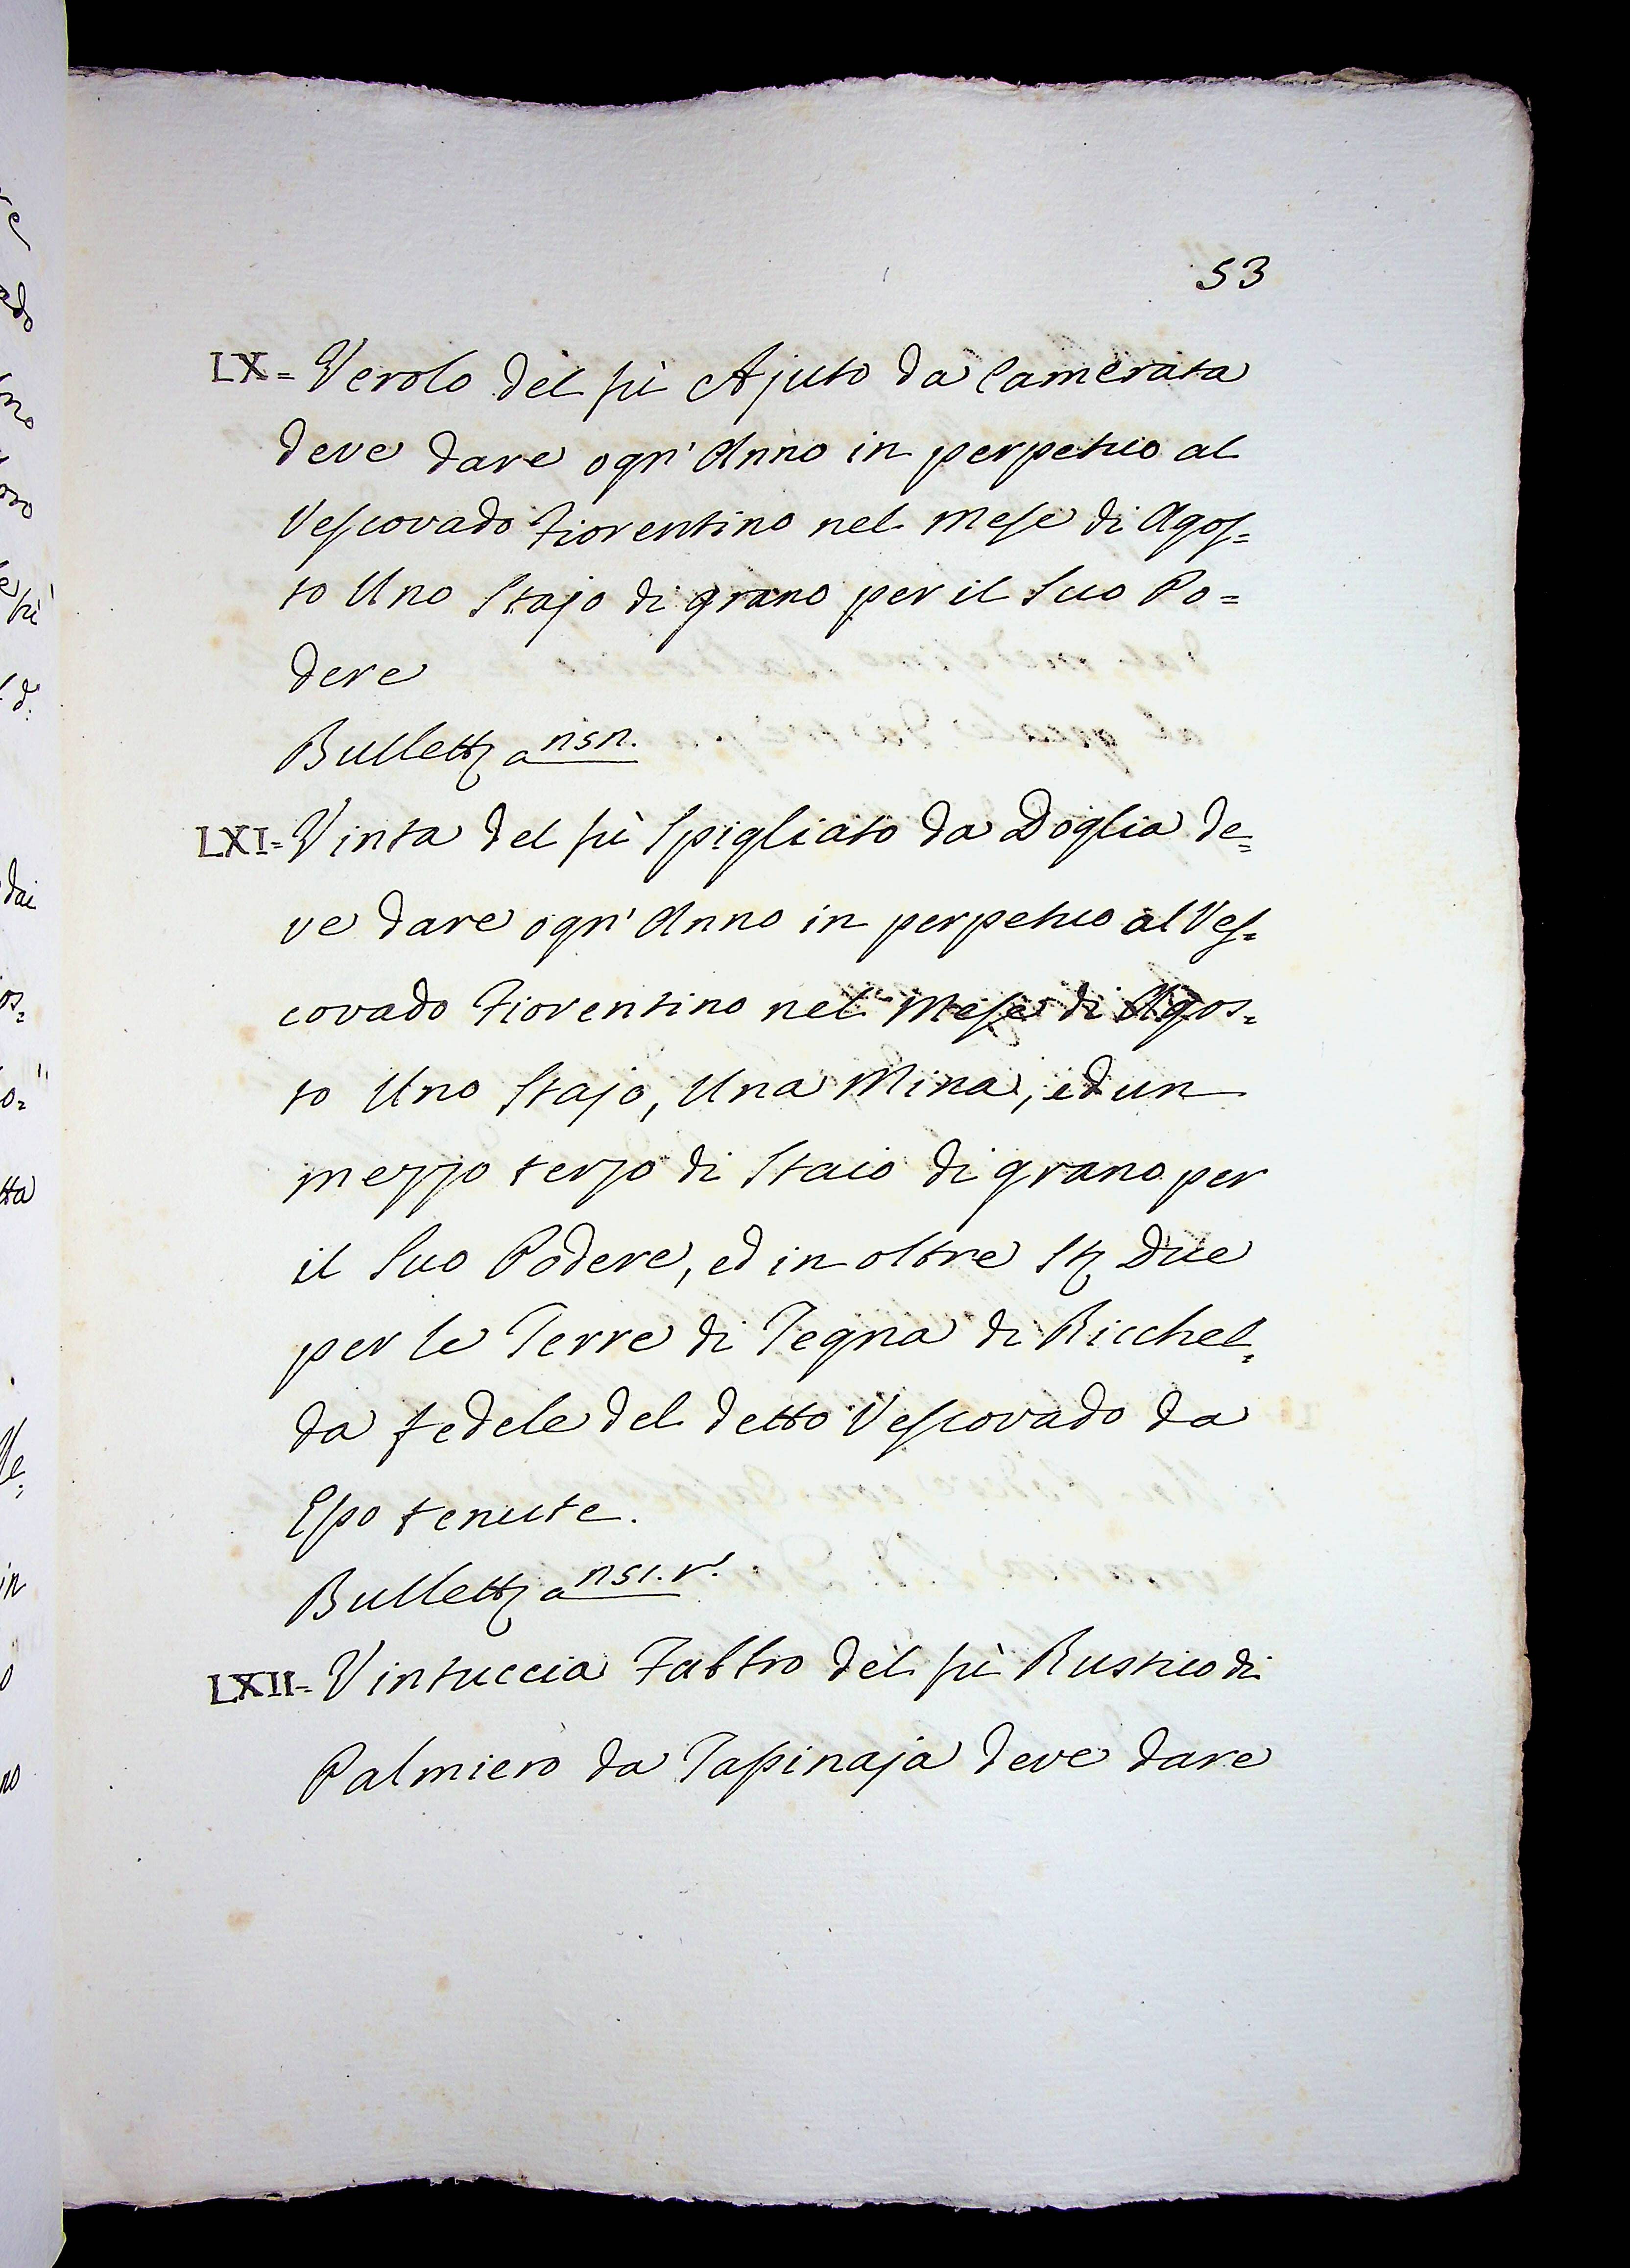 53
LX= Verolo del fù Ajuto da Camerata
deve dare ogn' Anno in perpetuo al
Vescovado Fiorentino nel Mese di Agos=
to Uno Stajo di grano per il Suo Po=
dere
Bulletta
LXI= Vinta del fù Spigliato da Doglia de=
ve dare ogn' Anno in perpetuo al Ves=
covado Fiorentino nel Mese di Agos=
to Uno Stajo, Una Mina, ed un
mezzo terzo di Staio di grano per
il Suo Podere, ed in oltre St due
per le Terre di Tegna di Ricchel=
da fedele del detto Vescovado da
Esso tenute.
Bulletta
LXII= Vintuccia Fabbro del fù Rustico di
Palmiero da Tassinaja deve dare